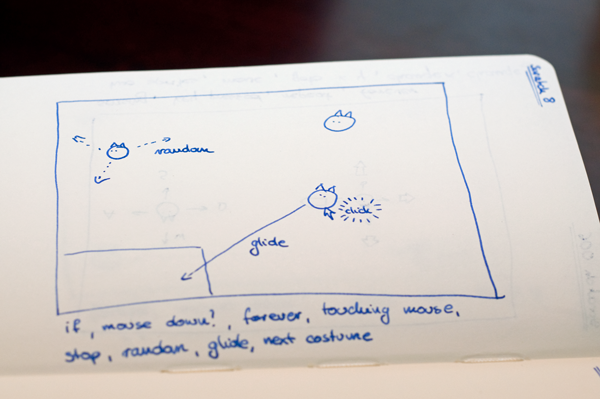 Scratch 8
random
click
glide
if, mouse down?, forever, touching mouse,
stop, random, glide, next costume